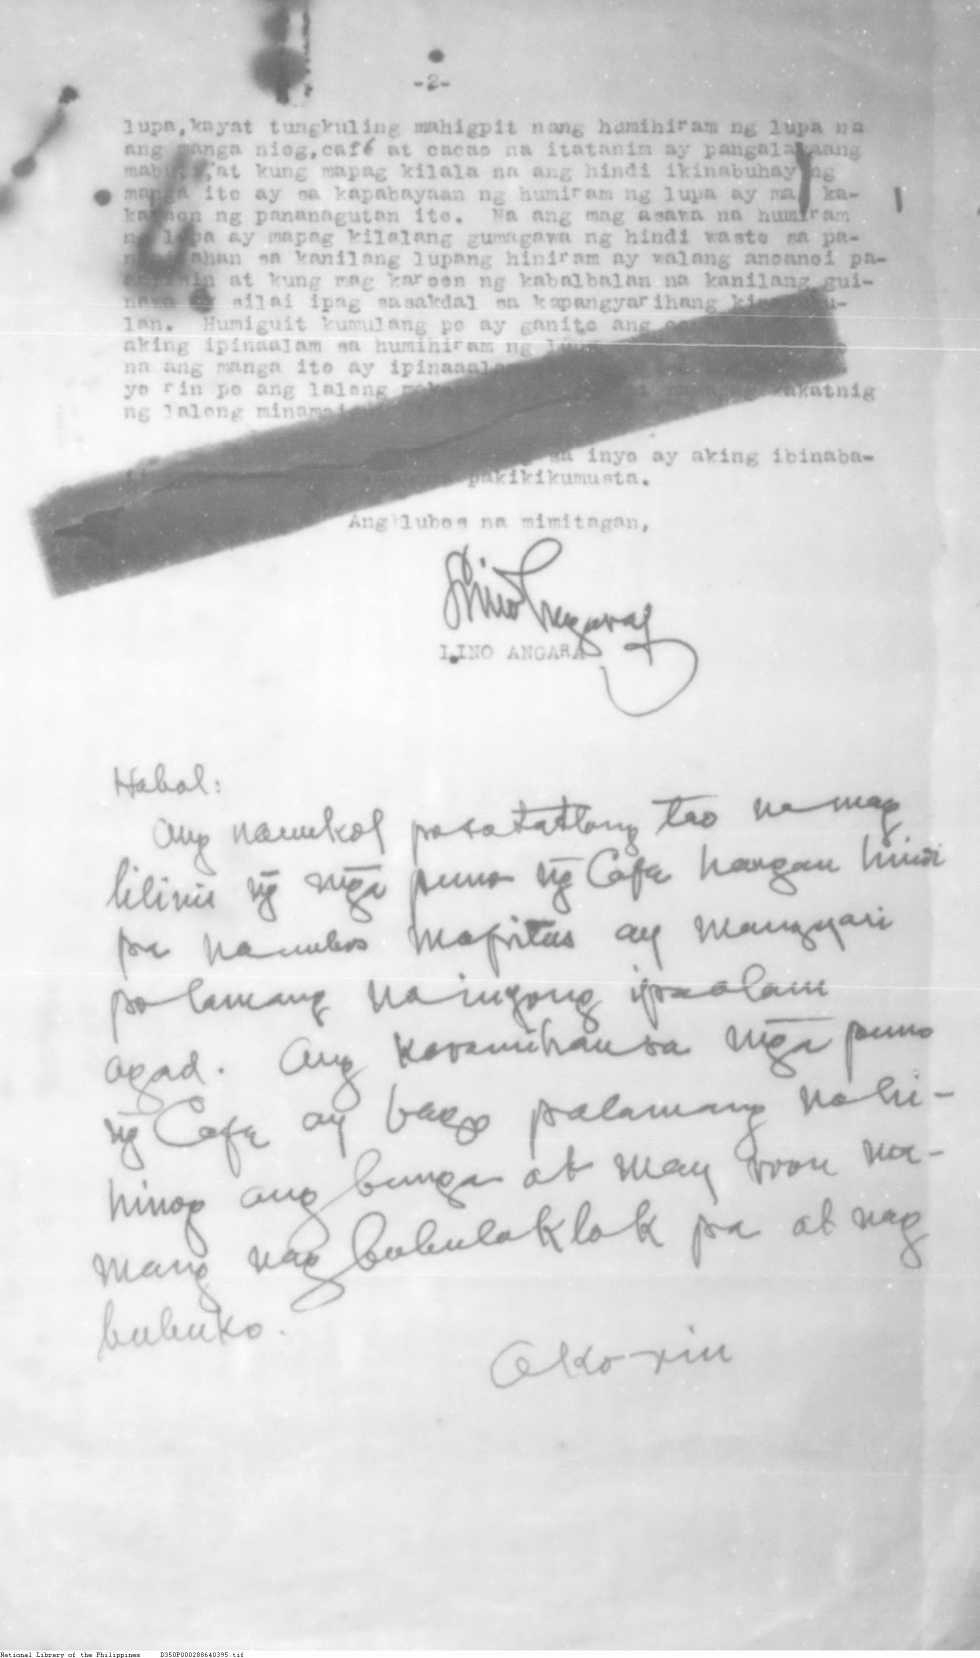 -2-
lupa, kayat tungkuling mahigpit nang humihiram ng lupa na
ang manga niog, café at cacao na itatanim ay pangalagaang
mabuti, at kung mapag kilala na ang hindi ikinabuhay ng
manga ito ay sa kapabayaan ng humiram ng lupa ay may ka-
karoon ng pananagutan ito. Na ang mag asawa na humiram
ng lupa ay mapag kilalang gumagawa ng hindi wasto sa pa-
sa kanilang lupang hiniram ay walang anoanoi pa-
at kung mag karoon ng kabalbalan na kanilang gui-
nawa ay silai ipag sasakdal sa kapangyarihang
lan. Humiguit kumulang po ay ganito ang
aking ipinaalam sa humihiram ng lupa
na ang manga ito ay
yo rin po ang lalong makakatnig
ng lalong
sa inyo ay aking ibinaba-
pakikikumusta.
Ang lubos na mimitagan,
LINO ANGARA
Habol:
Ang naunkol po sa tatlong tao na mag
lilinis ng mga puno ng Cafe hangan hindi
pa naubos mapitas ay mangyari
po lamang na inyong ipaalam
agad. Ang karamihan sa mga puno
ng Cafe ay bago palamang nahi-
hinog ang bunga at may roon na-
mang nag bubulaklak pa at nag
bubuko.
Ako rin
National Library of the Philippines D350P000288640395.tif